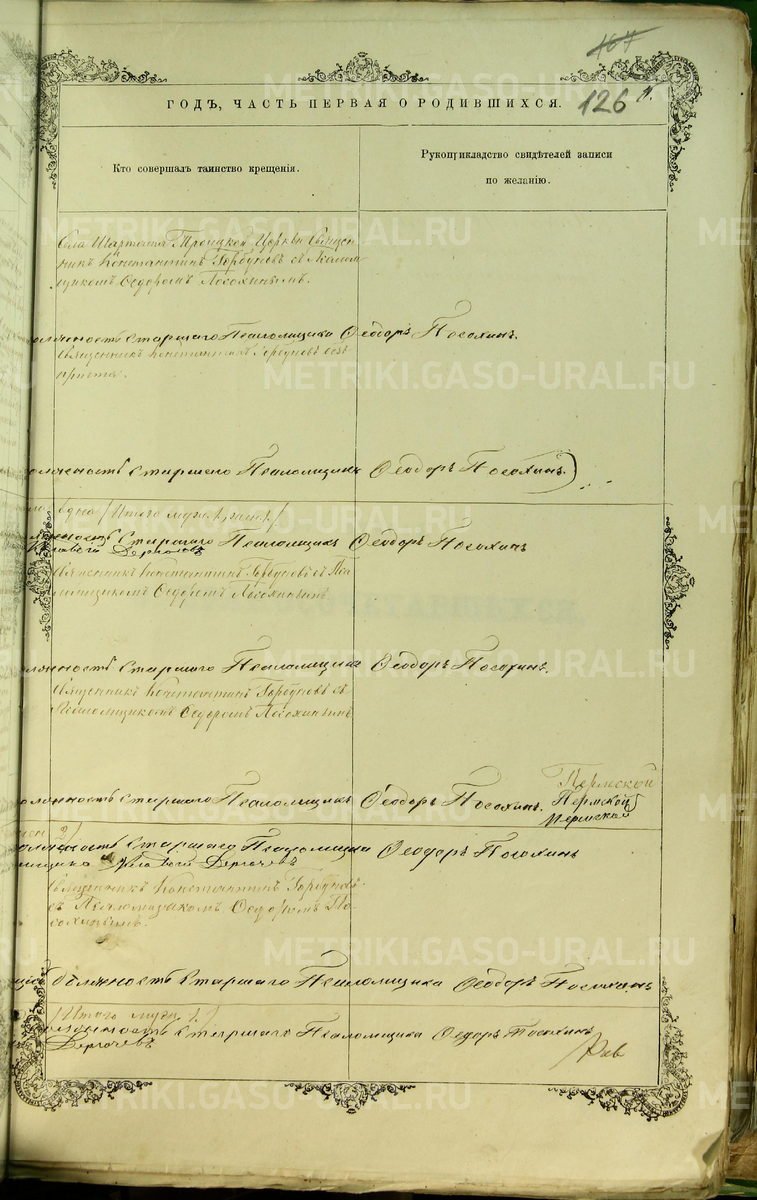 107
126
ГОДЪ, ЧАСТЬ ПЕРВАЯ О РОДИВШИХСЯ.
Кто совершалъ таинство крещенія.
Рукоприкладство свидѣтелей записи
по желанію.
Села Шарташа Троицкой Церкви Священ-
никъ Константинъ Горбуновъ съ Псалом-
щикомъ Ѳедоромъ Посохинымъ.
должность старшаго Псаломщика Ѳеодоръ Посохинъ.
Священникъ Константинъ Горбуновъ безъ
причта.
должность старшаго Псаломщика Ѳеодоръ Посохинъ.
одна (Итого муж. жен.)
должность старшаго Псаломщика Ѳеодоръ Посохинъ
Дергачевъ
Священникъ Константинъ Горбуновъ съ Пса-
ломщикомъ Ѳедоромъ Посохинымъ
должность старшаго Псаломщика Ѳеодоръ Посохинъ.
Священникъ Константинъ Горбуновъ съ
Псаломщикомъ Ѳедоромъ Посохинымъ
Пермской
должность старшаго Псаломщика Ѳеодоръ Посохинъ.
Пермской
Пермской
жен 2)
должность старшаго Псаломщика Ѳеодоръ Посохинъ
Дергачевъ
Священникъ Константинъ Горбуновъ
съ Псаломщикомъ Ѳедоромъ По-
сохинымъ.
должность старшаго Псаломщика Ѳеодоръ Посохинъ
(Итого муж. 2)
должность старшаго Псаломщика Ѳедоръ Посохинъ
Дергачевъ
METRIKI.GASO-URAL.RU